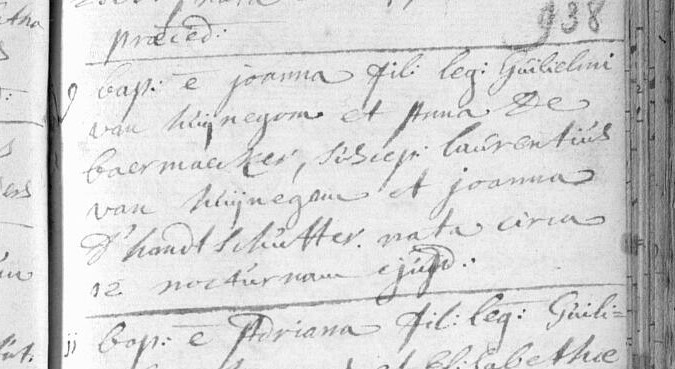 938
præced:
9 bap: e joanna fil: leg: Guilielmi
van huijnegom et Anna De
baermaecker, suscep: laurentius
van huijnegom et joanna
D'handtschutter. nata circa
12 nocturnam ejusd:
11 bap: e Adriana fil: leg: Guili=
Elisabethæ